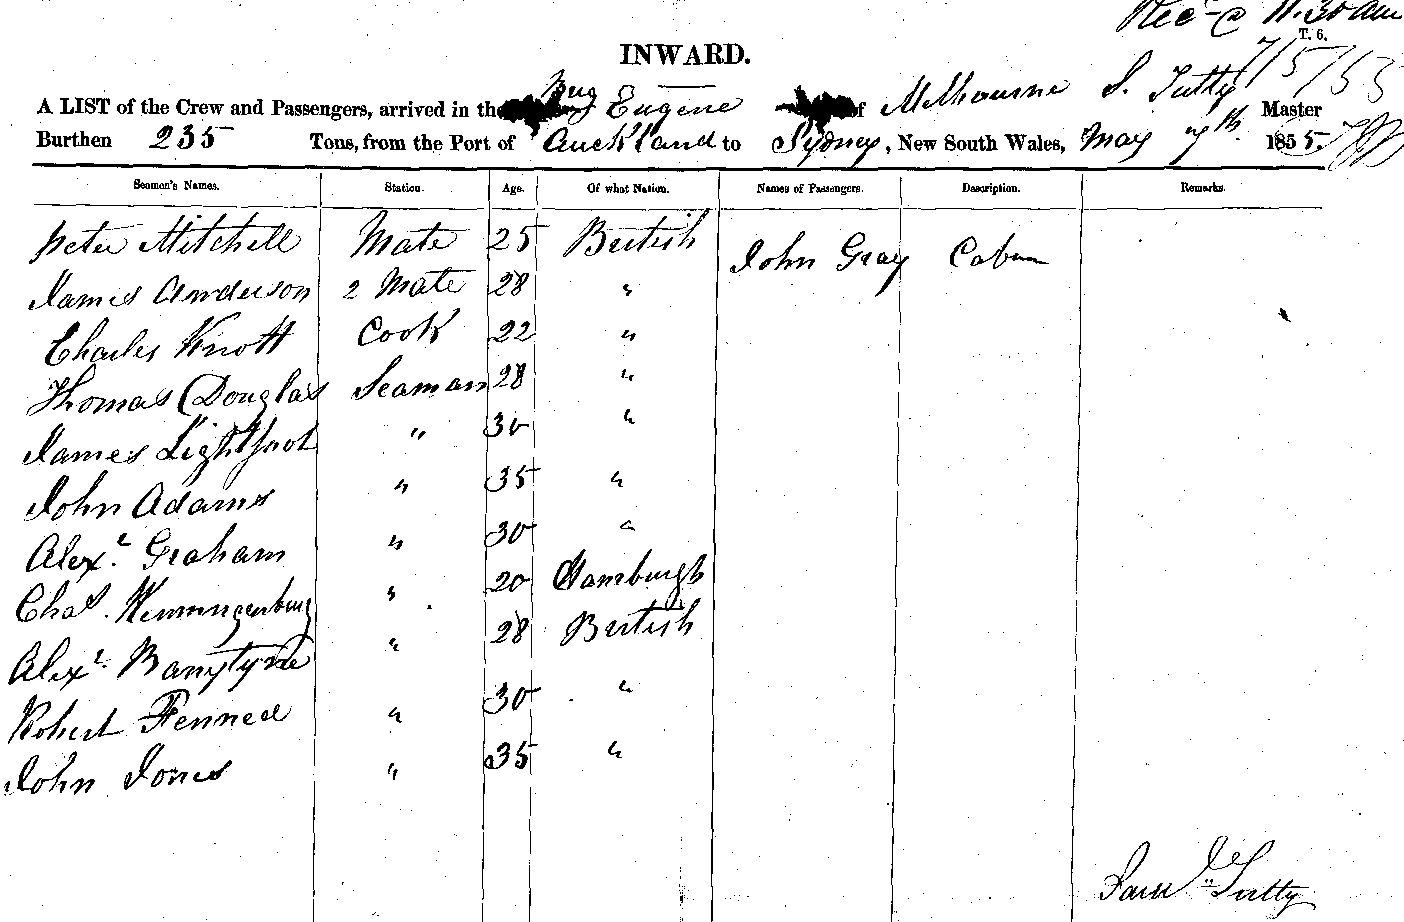 Rec-@ 11.30 am
T. 6.
7/5/55
INWARD.
A LIST of the Crew and Passengers, arrived in the Brig Eugene of Melbourne S. Tutty Master
Burthen 235 Tons, from the Port of Auckland to Sydney, New South Wales, May 7th 1855.
Seamen's Names. Station. Age. Of what Nation. Names of Passengers. Description. Remarks.
Peter Mitchell Mate 25 British John Gray Cabin
James Anderson 2 Mate 28 "
Charles Knott Cook 22 "
Thomas Douglas Seaman 28 "
James Lightfoot " 30 "
John Adams " 35 "
Alexr Graham " 30 "
Chas. " 20 Hamburgh
Alexr " 28 British
Robert " 30 "
John Jones " 35 "
Tutty